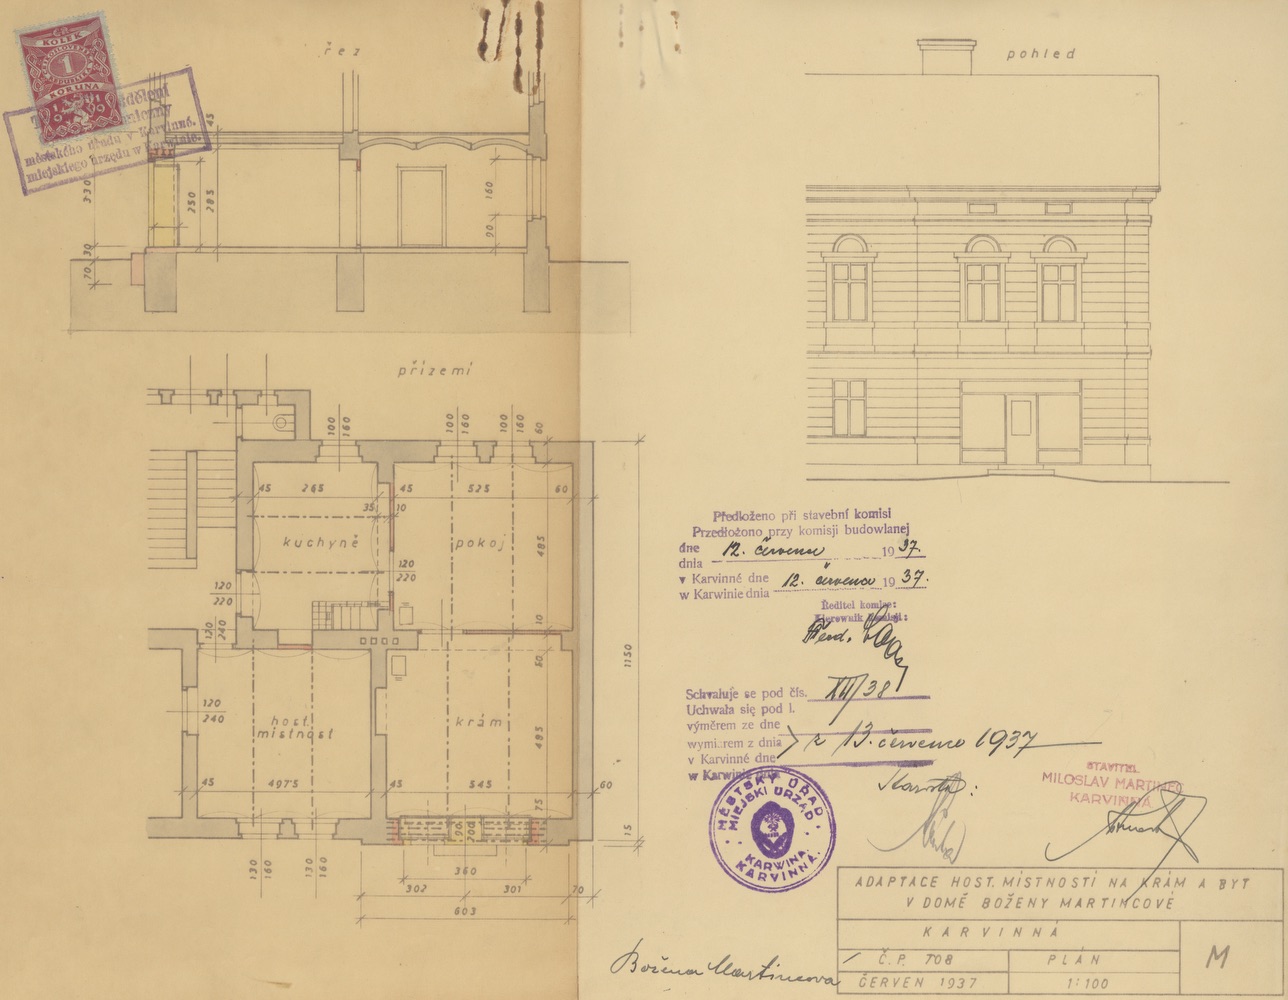 řez
KOLEK
1
KORUNA
městského úřadu v Karvinné.
miejskiego urzędu w Karwinie.
45
330
250
285
160
90
30
70
pohled
přízemí
100
160
100
160
100
160
60
45
265
45
525
60
35
10
kuchyně
pokoj
485
120
220
120
220
10
120
240
50
1150
120
240
host.
místnost
krám
495
45
4975
45
545
60
75
90
200
15
130
160
130
160
360
302
301
70
603
Předloženo při stavební komisi
Przedłożono przy komisji budowlanej
dne
dnia
12. července 1937.
v Karvinné dne
w Karwinie dnia
12. července 1937.
Ředitel komise:
Kierownik komisji:
Schvaluje se pod čís.
Uchwała się pod l.
XII/38
výměrem ze dne
wymiarem z dnia
z 13. července 1937
v Karvinné dne
w Karwinie dnia
Starosta:
MĚSTSKÝ ÚŘAD
MIEJSKI URZĄD
KARWINA
KARVINNÁ
STAVITEL
MILOSLAV MARTINEC
KARVINNÁ
ADAPTACE HOST. MÍSTNOSTÍ NA KRÁM A BYT
V DOMĚ BOŽENY MARTINCOVÉ
KARVINNÁ
Č.P. 708
PLÁN
M
ČERVEN 1937
1:100
Božena Martincova